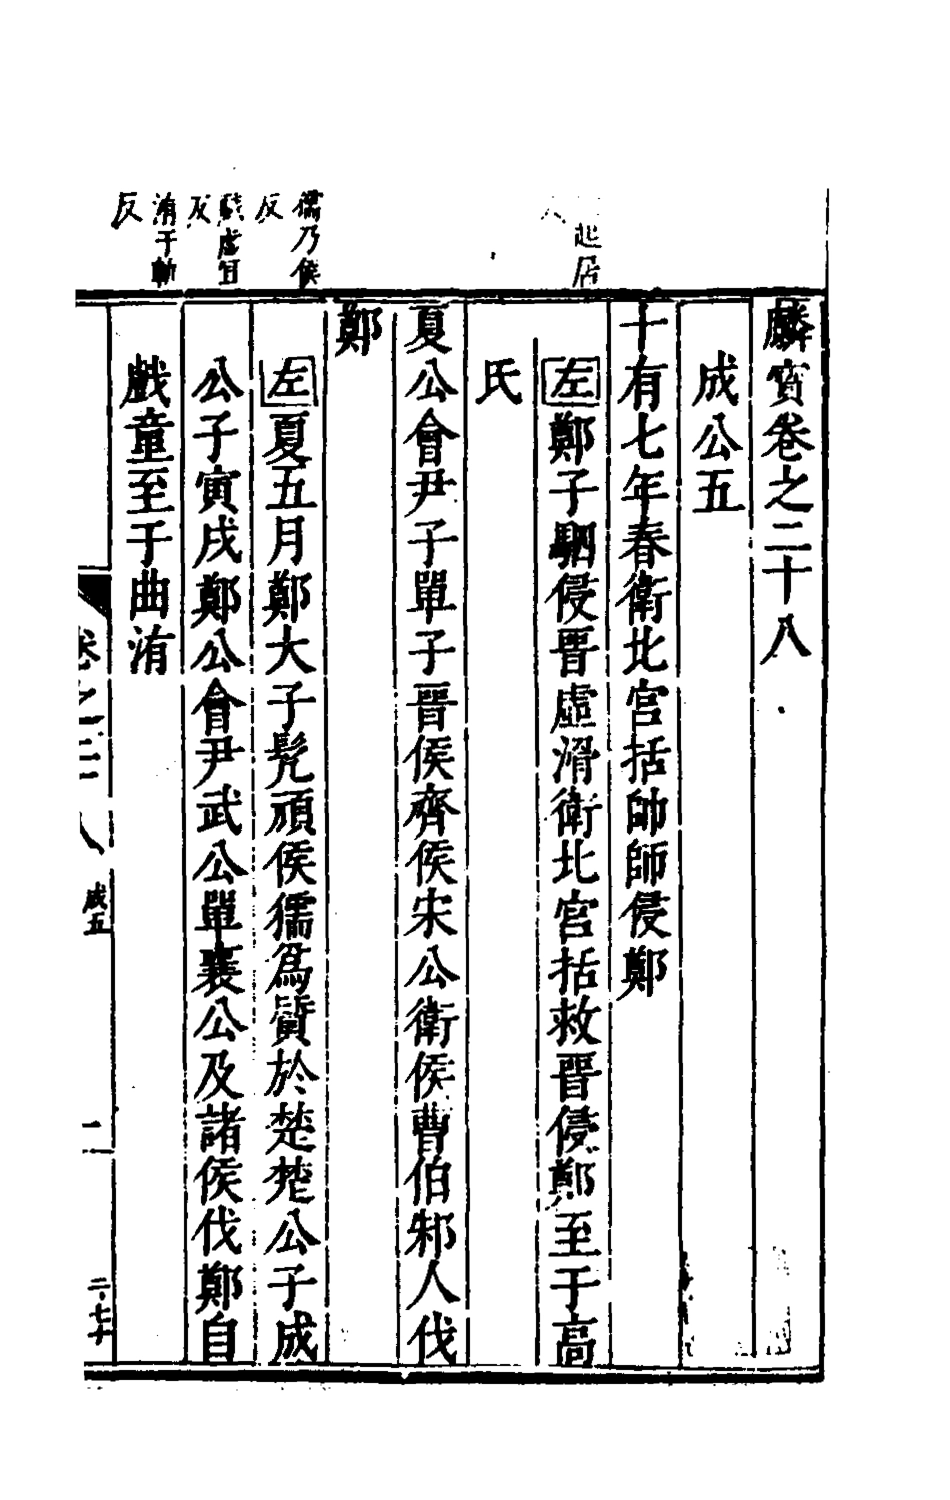 麟寶卷之二十八
成公五
十有七年春衛北宮括帥師侵鄭
左鄭子駟侵晉虛滑衛北宮括救晉侵鄭至于高
氏
夏公會尹子單子晉侯齊侯宋公衛侯曹伯邾人伐
鄭
左夏五月鄭大子髠頑侯獳為質於楚楚公子成
公子寅戍鄭公會尹武公單襄公及諸侯伐鄭自
戲童至于曲洧
起居
獳乃侯
反
戲虛宜
反
洧于軌
反
卷之二十八
成五
一
二七十